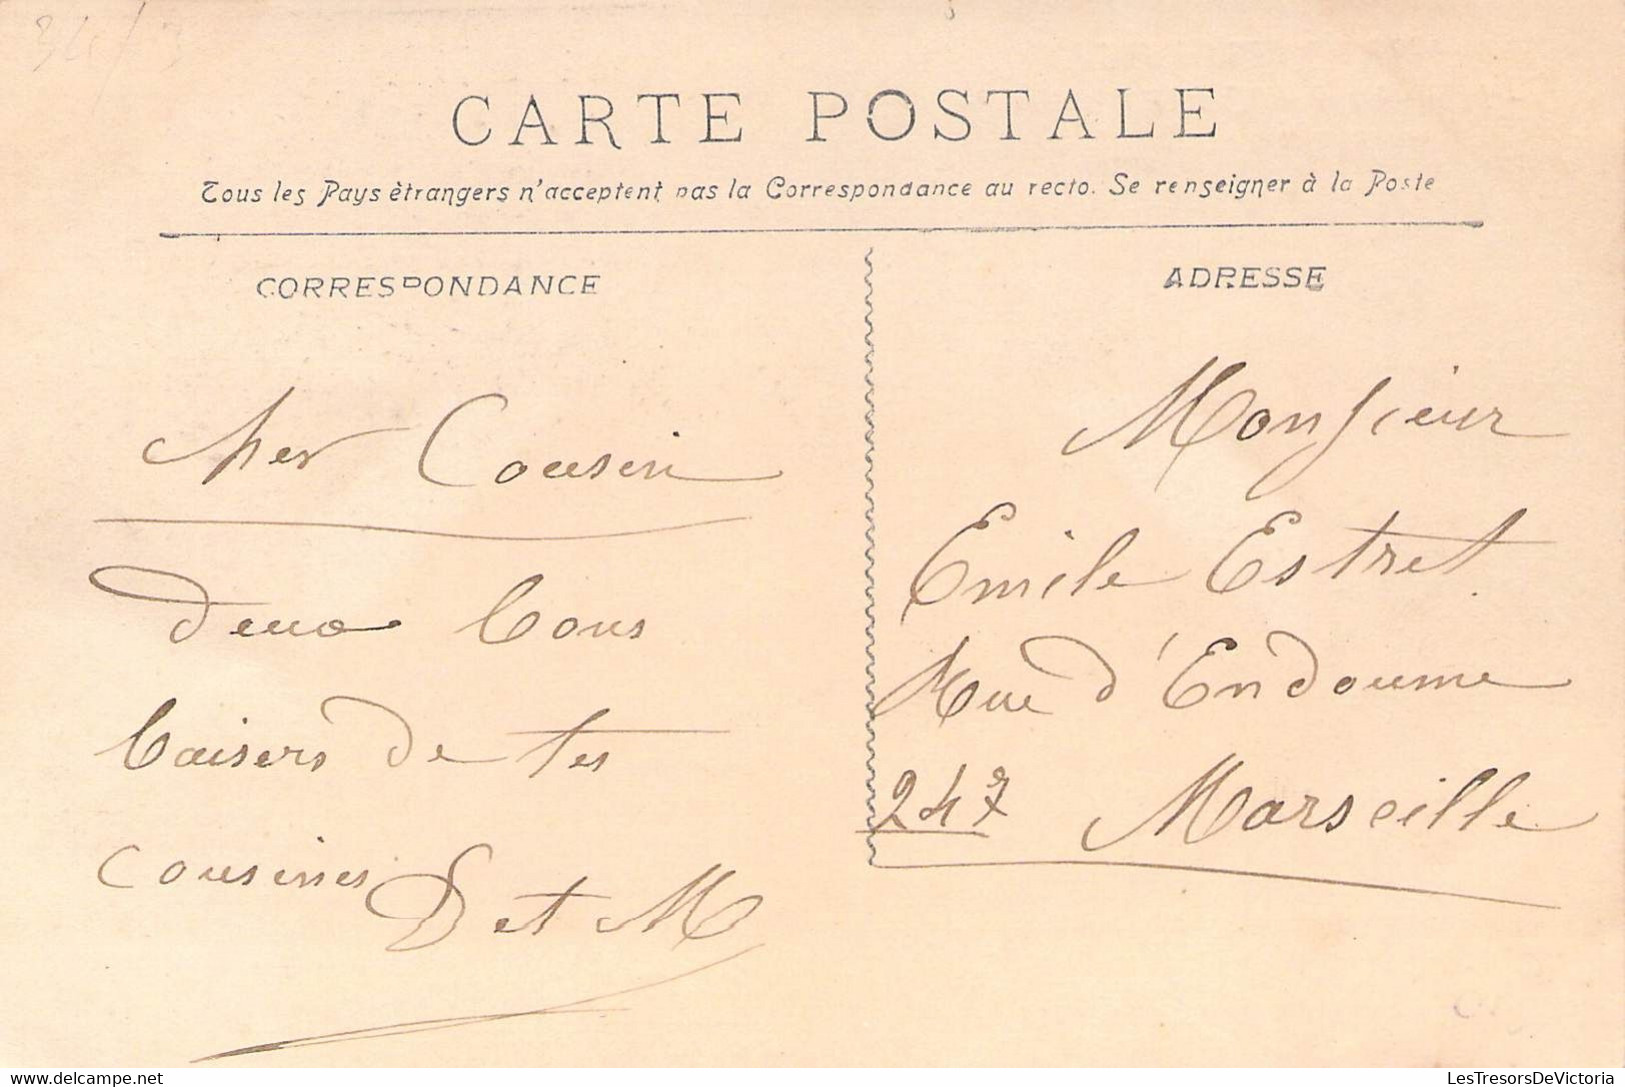 CARTE POSTALE
Tous les Pays étrangers n'acceptent pas la Correspondance au recto. Se renseigner à la Poste
CORRESPONDANCE
Cher Cousin
deux bons
baisers de tes
cousines
et M
ADRESSE
Monsieur
Emile Estret
Rue d'Endoume
247 Marseille
delcampe.net
LesTresorsDeVictoria